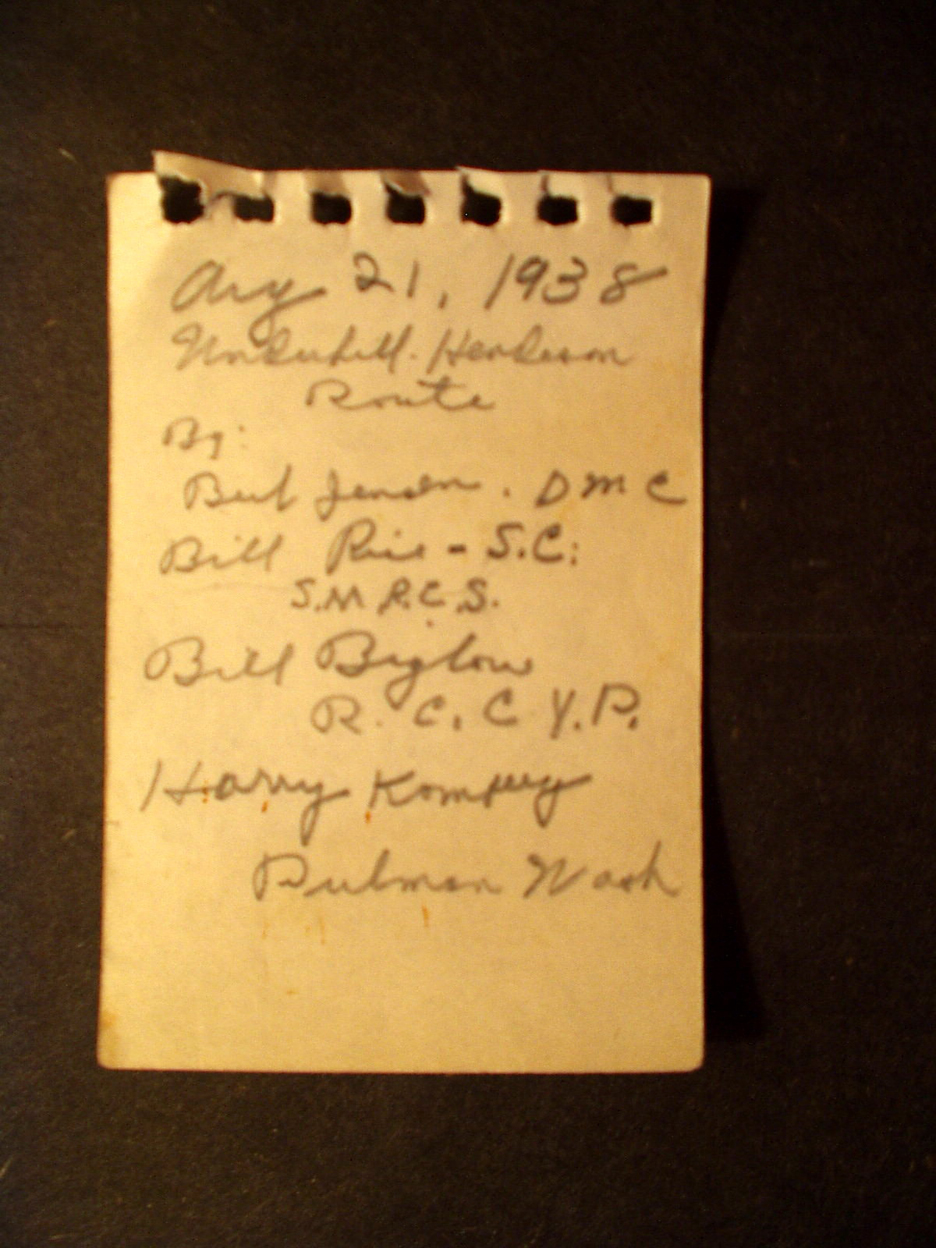 Aug 21, 1938
Underhill. Henderson
Route
By:
Bert Jensen. DMC
Bill Rice - S.C:
S.M.R.C.S.
Bill Biglow
R. C. C Y. P.
Harry
Pulman Wash